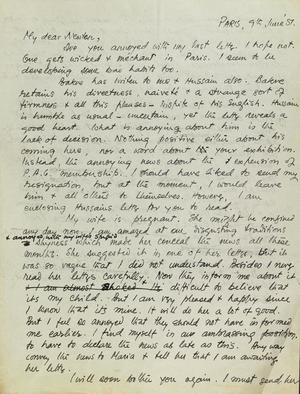 PARIS, 9th June 51.
My dear Newton,
Are you annoyed with my last letter. I hope not.
One gets wicked & méchant in Paris. I seem to be
developing some bad habits too.
Bakre has written to me & Hussain also. Bakre
retains his directness, naiveté & a strange sort of
firmness & all this pleases - inspite of his English. Husain
is humble as usual - uncertain, yet the letter reveals a
good heart. What is annoying about him is the
lack of decision. Nothing positive either about his
coming here, nor a word about the your exhibition.
Instead, the annoying news about the expansion of
P.A.G. membership. I should have liked to send my
resignation, but at the moment, I would leave
him & all others to themselves. However, I am
enclosing Husains letter for you to read.
My wife is pregnant. She might be confined
any day now. I am amazed at our disgusting traditions
& annoyed with my wife's stupid
shyness which made her conceal the news all these
months. She suggested it in one of her letters, but it
was so vague that I did not understand. Besides I never
read her letters carefully. Now they inform me about it
& I am almost shocked & difficult to believe that
its my child. But I am very pleased & happy since
I know that its mine. It will do her a lot of good.
But I feel so annoyed that they should not have informed
me earlier. I find myself in an embarrassing position
to have to declare the news as late as this. Any way
convey the news to Maria & tell her that I am awaiting
her letter.
I will soon write you again. I must send her